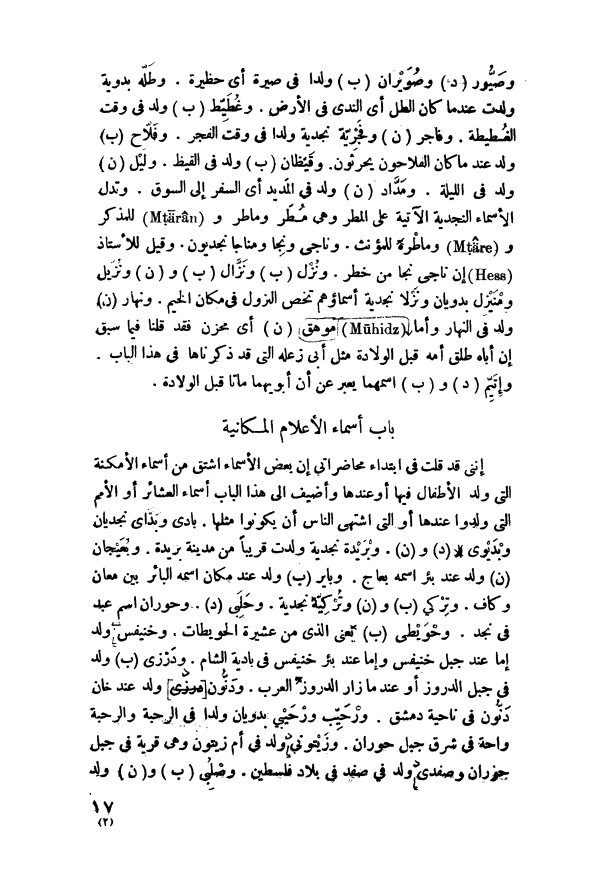 وصَيُّور (د) وصُوَيْران (ب) ولدا فى صيرة أى حظيرة . وطَلّه بدوية
ولدت عندما كان الطل أى الندى فى الأرض . وغُطَيِّط (ب) ولد فى وقت
الغُطيطة . وفاجر (ن) وفَجْرِيّة نجدية ولدا فى وقت الفجر . وفلّاح (ب)
ولد عند ماكان الفلاحون يحرثون. وقَيْظان (ب) ولد فى القيظ . ولَيْل (ن)
ولد فى الليلة . ومَدَّاد (ن) ولد فى المَديد أى السفر إلى السوق . وتدل
الأسماء النجدية الآتية على المطر وهى مُطَر وماطر و (Mṭärân) للمذكر
و (Mṭâre) وماطْرة للمؤنث . وناجى ونِجا ومناجا نجديون. وقيل للأستاذ
(Hess) إن ناجى نجا من خطر . ونُزْل (ب) ونَزَّال (ب) و (ن) ونُزَيل
ومُنَيْزل بدويان ونَزْلا نجدية أسماؤهم تخص النزول فى مكان الخيم . ونهار (ن)
ولد فى النهار وأما (Mūhidz) موهق (ن) أى محزن فقد قلنا فيما سبق
إن أباه طلق أمه قبل الولادة مثل أبى زعله التى قد ذكرناها فى هذا الباب .
وإتَيِّم (د) و (ب) اسمهما يعبر عن أن أبويهما ماتا قبل الولادة .
باب أسماء الأعلام المكانية
إننى قد قلت فى ابتداء محاضراتى إن بعض الأسماء اشتق من أسماء الأمكنة
التى ولد الأطفال فيها أو عندها وأضيف الى هذا الباب أسماء العشائر أو الأمم
التى ولدوا عندها أو التى اشتهى الناس أن يكونوا مثلها . بادى وبَدّاى نجديان
وبْدَيْوى (د) و (ن) . وبْرَيْدة نجدية ولدت قريباً من مدينة بريدة . وبُعَيْجان
(ن) ولد عند بئر اسمه بعاج . وباير (ب) ولد عند مكان اسمه البائر بين معان
وكاف . وتِرْكي (ب) و (ن) وتُرْكِيّة نجدية . وحَلَبي (د) .. وحوران اسم عبد
فى نجد . وحْوَيْطى (ب) يمعنى الذى من عشيرة الحويطات . وخنيفس ولد
إما عند جبل خنيفس وإما عند بئر خنيفس فى بادية الشام . ودَرْزى (ب) ولد
فى جبل الدروز أو عند ما زار الدروز العرب . ودَنُّون ولد عند خان
دَنُّون فى ناحية دمشق . ورْحَيِّب ورْحَيْبي بدويان ولدا فى الرحبة والرحبة
واحة فى شرق جبل حوران . وزَيْتونى ولد فى أم زيتون وهى قرية فى جبل
حوران وصفدى ولد في صفد في بلاد فلسطين . وصُلْبي (ب) و (ن) ولد
١٧
(٢)